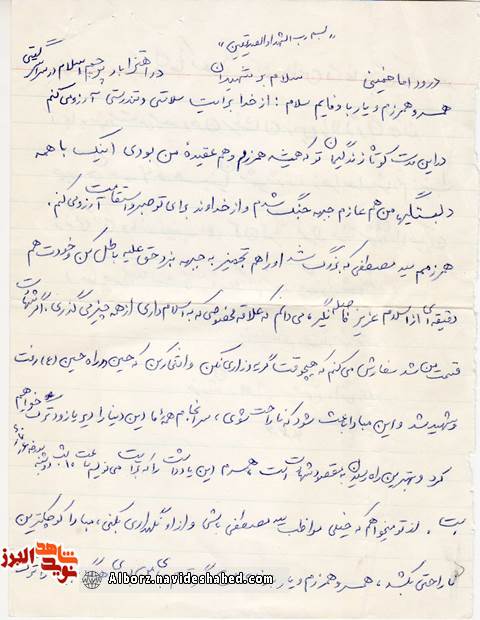 "بسمه رب الشهداء والصدیقین"
درود بر امام خمینی سلام بر شهیدان در اهتزاز باد پرچم اسلام در سراسر گیتی
همسر و همرزم و یار با وفایم سلام: از خدا برایت سلامتی و تندرستی آرزو می کنم
در این مدت کوتاه زندگیمان تو که همیشه همرزم و هم عقیده من بودی اینک با همه
دلبستگی، من هم عازم جبهه جنگ شدم و از خداوند برای تو صبر و استقامت آرزو می کنم.
همرزمم سید مصطفی که بزرگ شد او را هم تجهیز به جبهه نبرد حق علیه باطل کن و خودت هم
دقیقه ای از اسلام عزیز فاصله نگیر، می دانم که علاقه مخصوصی که به اسلام داری از همه چیز می گذری، اگر شهادت
قسمت من شد سفارش می کنم که هیچوقت گریه زاری نکن و افتخار کن که حسین در راه حسین (ع) رفت
و شهید شد و این مبادا باعث شود که ناراحت شوی، سرانجام همه ما این دنیا را دیر یا زود ترک خواهیم
کرد و بهترین راه رسیدن به مقصود شهادت است، همسرم این یادداشت را که برایت می نویسم ساعت ۱۰ شب دوشنبه
است. از تو میخواهم که خیلی مواظب سید مصطفی باشی و از او نگهداری بکنی، مبادا کوچکترین
ناراحتی بکشد، همسر و همرزم و یار
نوید شاهد البرز
Alborz.navideshahed.com